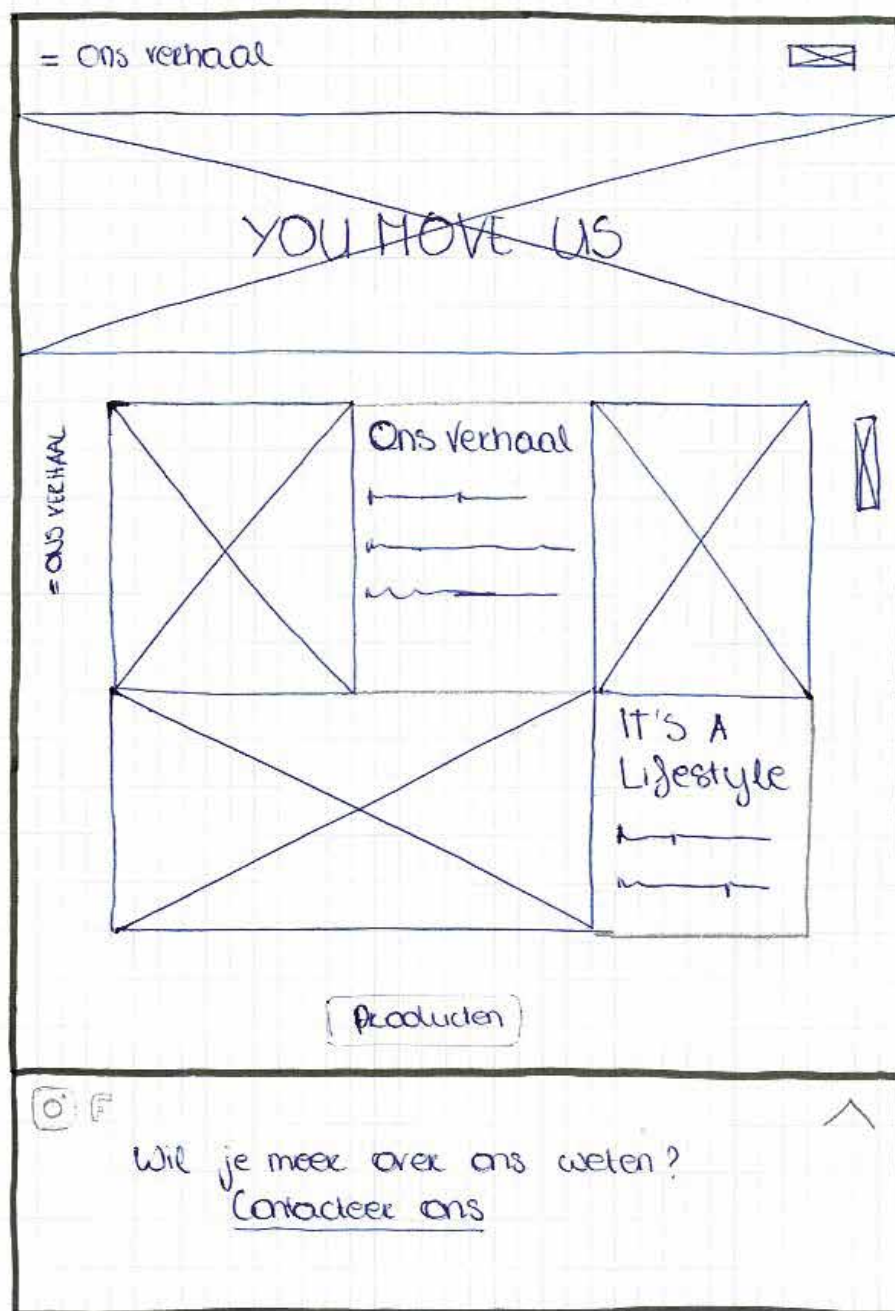 = Ons verhaal
YOU MOVE US
= ONS VERHAAL
Ons verhaal
IT'S A
Lifestyle
Producten
F
Wil je meer over ons weten?
Contacteer ons